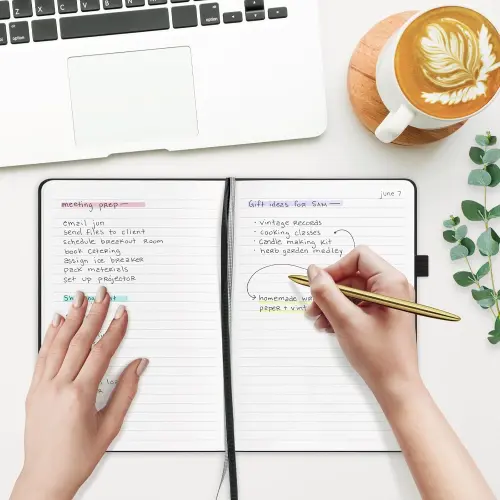 meeting prep —
email jon
send files to client
schedule breakout room
book catering
assign ice breaker
pack materials
set up projector
june 7
Gift ideas for Sam —
· vintage records
· cooking classes
· candle making kit
· herb garden medley
→ homemade
paper +
option
option